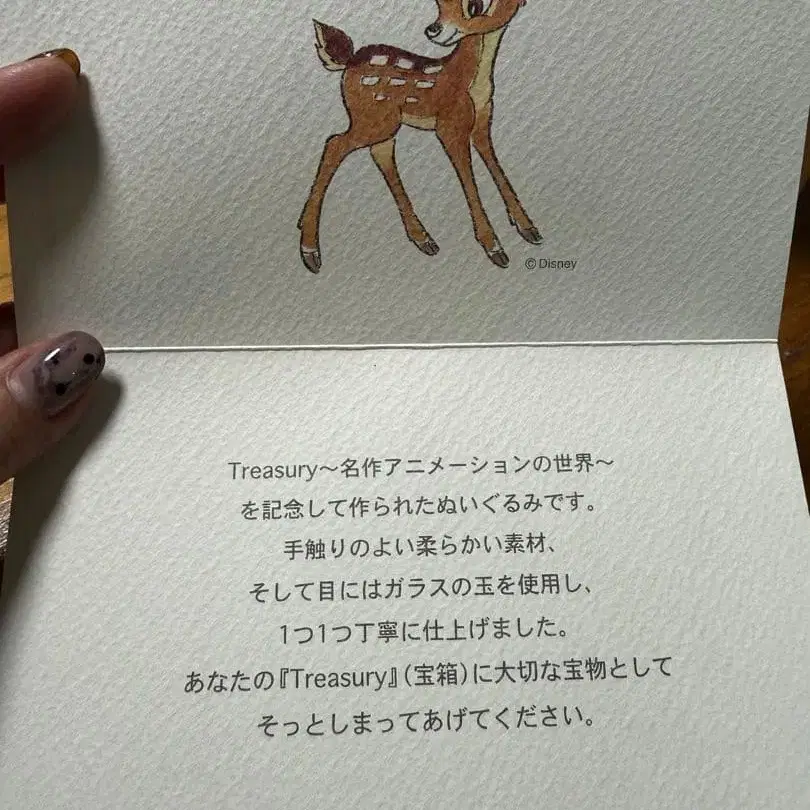 © Disney
Treasury～名作アニメーションの世界～
を記念して作られたぬいぐるみです。
手触りのよい柔らかい素材、
そして目にはガラスの玉を使用し、
1つ1つ丁寧に仕上げました。
あなたの『Treasury』（宝箱）に大切な宝物として
そっとしまってあげてください。